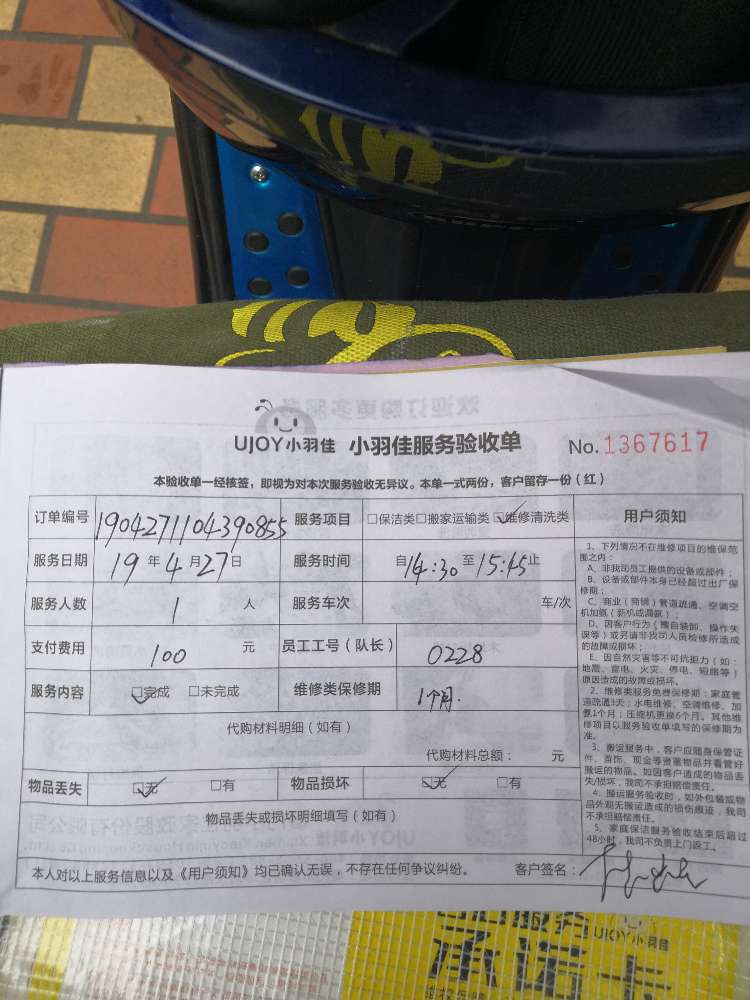 UJOY小羽佳 小羽佳服务验收单 No.1367617
本验收单一经核签，即视为对本次服务验收无异议。本单一式两份，客户留存一份（红）
订单编号 1904271104390855 服务项目 □保洁类□搬家运输类☑维修清洗类
服务日期 19年4月27日 服务时间 自14:30至15:45止
服务人数 1 人 服务车次 车/次
支付费用 100 元 员工工号（队长） 0228
服务内容 ☑完成 □未完成 维修类保修期 1个月.
代购材料明细（如有）
代购材料总额： 元
物品丢失 ☑无 □有 物品损坏 ☑无 □有
物品丢失或损坏明细填写（如有）
本人对以上服务信息以及《用户须知》均已确认无误，不存在任何争议纠纷。 客户签名：
用户须知
1、下列情况不在维修项目的维保范
围之内：
A、非我司员工提供的设备或部件；
B、设备或部件本身已经超过出厂保
修期；
C、商业（商铺）管道疏通、空调空
机加氨（新机或漏氨）；
D、因客户行为（擅自装卸、操作失
误等）或另请非我司人员检修所造成
的故障或损坏；
E、因自然灾害等不可抗拒力（如：
地震、雷电、火灾、停电、短路等）
原因造成的故障或损坏。
2、维修类服务免费保修期：家庭管
道疏通3天；水电维修、空调维修、加
氨1个月；压缩机更换6个月。其他维
修项目以服务验收单填写的保修期为
准。
3、搬运服务中，客户应随身保管证
件、首饰、现金等贵重物品并看管好
搬运的物品。如因客户造成的物品丢
失/损坏，我司不承担赔偿责任。
4、搬运服务验收时，如外包装或物
品外观无搬运造成的损伤痕迹，我司
不承担赔偿责任。
5、家庭保洁服务验收结束后超过
48小时，我司不负责上门返工。
UJOY小羽佳
承运卡